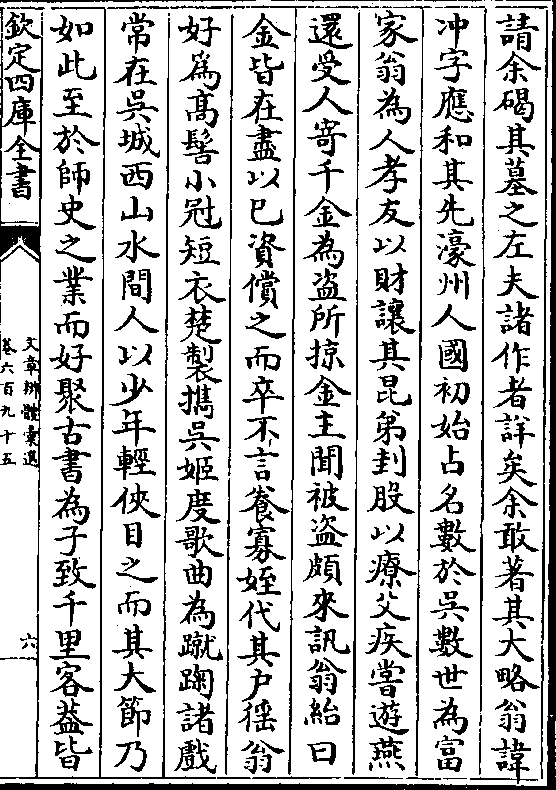 請余碣其墓之左夫諸作者詳矣余敢著其大略翁諱
冲字應和其先濠州人國初始占名數於吳數世為富
家翁為人孝友以財讓其昆弟刲股以療父疾嘗遊燕
還受人寄千金為盗所掠金主聞被盗頗來訊翁紿曰
金皆在盡以已資償之而卒不言養寡姪代其户徭翁
好為髙髻小冠短衣楚製攜吳姬度歌曲為蹴踘諸戲
常在吳城西山水間人以少年輕俠目之而其大節乃
如此至於師史之業而好聚古書為子致千里客葢皆
欽定四庫全書
文章辨體彙選
卷六百九十五
六